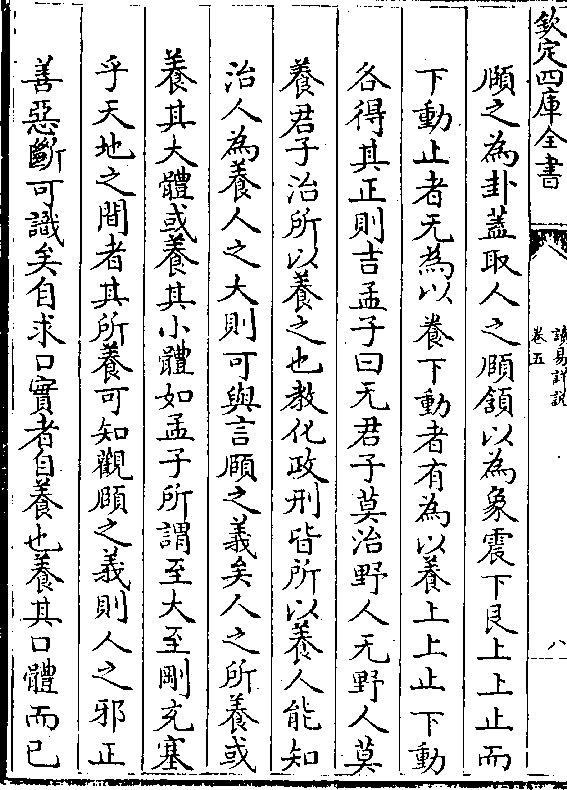 欽定四庫全書
讀易詳說
卷五
八
頤之為卦蓋取人之頤頷以為象震下艮上上止而
下動止者无為以養下動者有為以養上上止下動
各得其正則吉孟子曰无君子莫治野人无野人莫
養君子治所以養之也教化政刑皆所以養人能知
治人為養人之大則可與言頤之義矣人之所養或
養其大體或養其小體如孟子所謂至大至剛充塞
乎天地之間者其所養可知觀頤之義則人之邪正
善惡斷可識矣自求口實者自養也養其口體而已